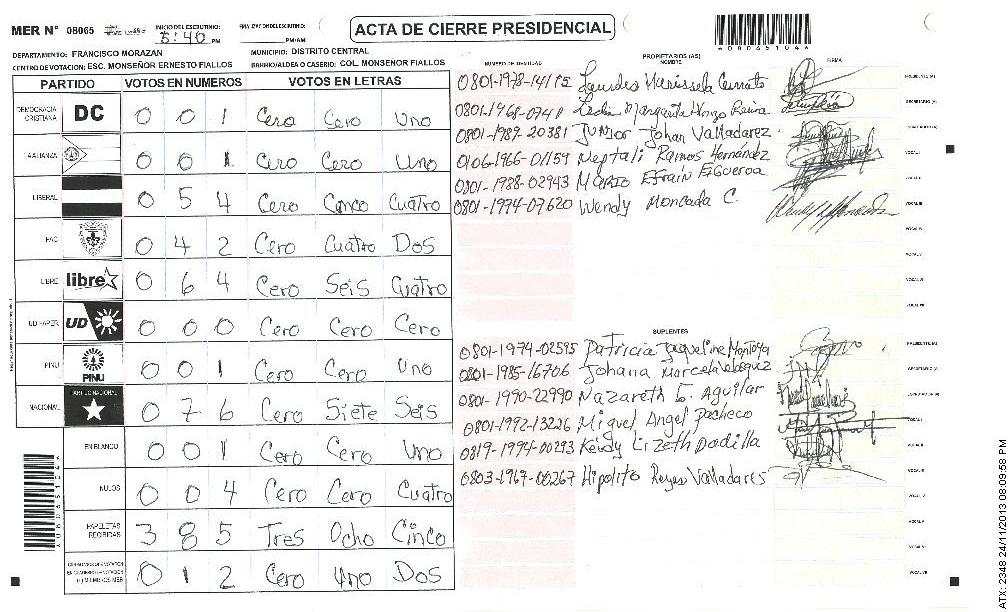 MER N° 08065 INICIO DEL ESCRUTINIO: 5:40 PM FINALIZACION DEL ESCRUTINIO: PM/AM
ACTA DE CIERRE PRESIDENCIAL
DEPARTAMENTO: FRANCISCO MORAZAN MUNICIPIO: DISTRITO CENTRAL
CENTRO DE VOTACION: ESC. MONSEÑOR ERNESTO FIALLOS BARRIO/ALDEA O CASERÍO: COL. MONSEÑOR FIALLOS
PARTIDO VOTOS EN NUMEROS VOTOS EN LETRAS
DEMOCRACIA CRISTIANA DC 0 0 1 Cero Cero Uno
ALIANZA 0 0 1 Cero Cero Uno
LIBERAL 0 5 4 Cero Cinco Cuatro
PAC 0 4 2 Cero Cuatro Dos
LIBRE libre 0 6 4 Cero Seis Cuatro
UD FAPER UD 0 0 0 Cero Cero Cero
PINU PINU 0 0 1 Cero Cero Uno
NACIONAL PARTIDO NACIONAL 0 7 6 Cero Siete Seis
EN BLANCO 0 0 1 Cero Cero Uno
NULOS 0 0 4 Cero Cero Cuatro
PAPELETAS RECIBIDAS 3 8 5 Tres Ocho Cinco
0 1 2 Cero Uno Dos
PROPIETARIOS (AS)
NUMERO DE IDENTIDAD NOMBRE FIRMA
Lourdes Marissela Cerrato PRESIDENTE (A)
Margarita Reina SECRETARIO (A)
0801-1989-20381 Junior Johan Valladarez ESCRUTADOR (A)
0106-1966-01159 Neptali Ramos Hernández VOCAL I
0801-1988-02943 Mario Efraín Figueroa VOCAL II
0801-1994-07620 Wendy Moncada C. VOCAL III
VOCAL IV
VOCAL V
VOCAL VI
VOCAL VII
SUPLENTES
0801-1974-02595 Patricia Jaqueline Montoya PRESIDENTE (A)
0801-1985-16706 Johana Marcela Velasquez SECRETARIO (A)
0801-1990-22990 Nazareth E. Aguilar ESCRUTADOR (A)
0801-1992-13226 Miguel Angel Pacheco VOCAL I
0819-1994-00293 Keidy Lizeth Padilla VOCAL II
0803-1967-00267 Hipolito Reyes Valladares VOCAL III
VOCAL IV
VOCAL V
VOCAL VI
VOCAL VII
ATX: 2348 24/11/2013 08:09:58 PM